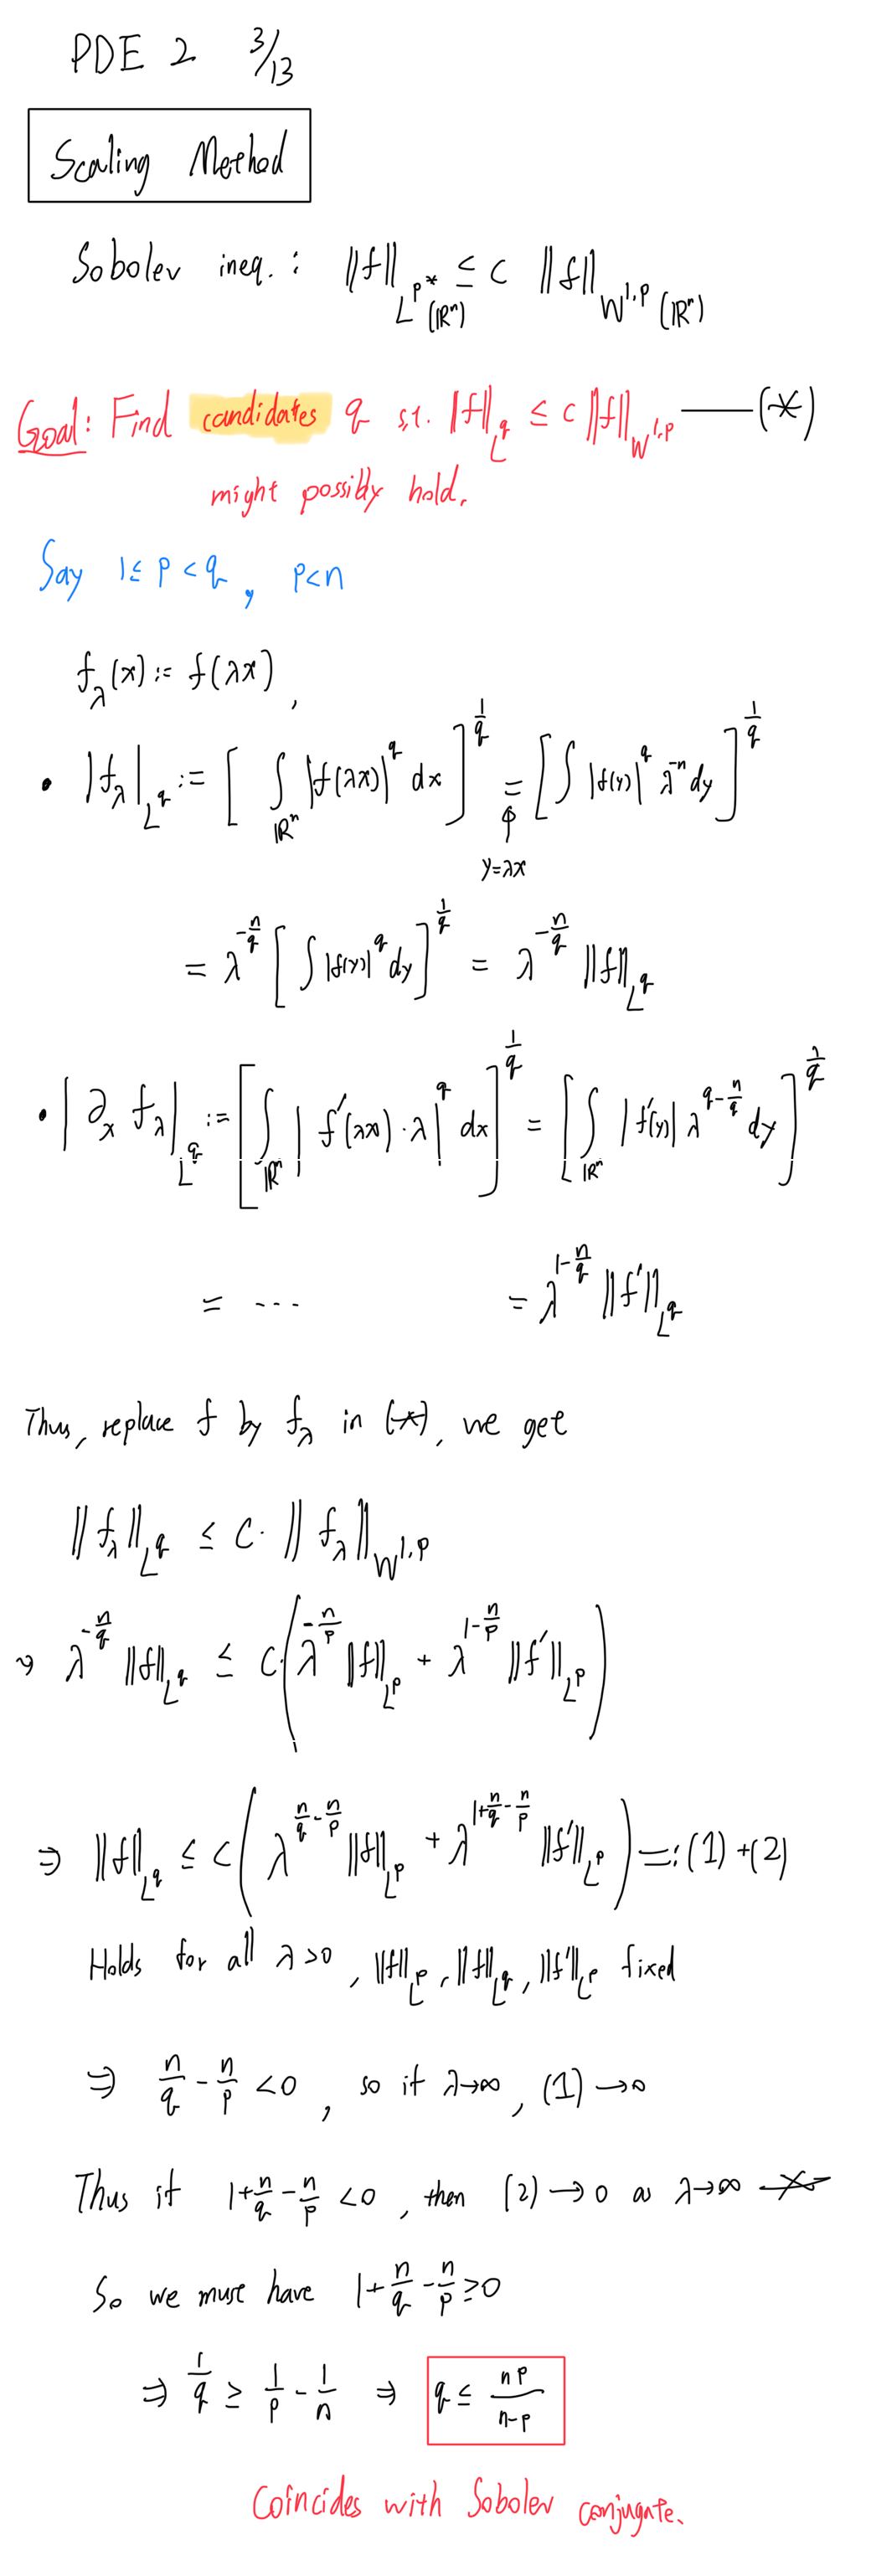 PDE 2 3/13
Scaling Method
Sobolev ineq. : ‖f‖_{L^{p*}(ℝⁿ)} ≤ C ‖f‖_{W^{1,p}(ℝⁿ)}
Goal: Find candidates q s.t. ‖f‖_{L^q} ≤ C‖f‖_{W^{1,p}} —— (*)
might possibly hold.
Say 1 ≤ p < q , p<n
f_λ(x) := f(λx) ,
• |f_λ|_{L^q} := [ ∫_{ℝⁿ} |f(λx)|^q dx ]^{1/q} = [ ∫ |f(y)|^q λ^{-n} dy ]^{1/q}
y=λx
= λ^{-n/q} [ ∫ |f(y)|^q dy ]^{1/q} = λ^{-n/q} ‖f‖_{L^q}
• | ∂_x f_λ |_{L^q} := [ ∫_{ℝⁿ} | f'(λx)·λ |^q dx ]^{1/q} = [ ∫_{ℝⁿ} | f'(y)| λ^{q-n/q} dy ]^{1/q}
= ··· = λ^{1-n/q} ‖f'‖_{L^q}
Thus, replace f by f_λ in (*), we get
‖f_λ‖_{L^q} ≤ C· ‖f_λ‖_{W^{1,p}}
⇒ λ^{-n/q} ‖f‖_{L^q} ≤ C·( λ^{-n/p} ‖f‖_{L^p} + λ^{1-n/p} ‖f'‖_{L^p} )
⇒ ‖f‖_{L^q} ≤ C( λ^{n/q-n/p} ‖f‖_{L^p} + λ^{1+n/q-n/p} ‖f'‖_{L^p} ) =: (1) +(2)
Holds for all λ>0 , ‖f‖_{L^p}, ‖f‖_{L^q}, ‖f'‖_{L^p} fixed
⇒ n/q - n/p <0 , so if λ→∞ , (1) →0
Thus if 1+n/q - n/p <0 , then (2) → 0 as λ→∞ →×←
So we must have 1+n/q - n/p ≥0
⇒ 1/q ≥ 1/p - 1/n ⇒ q ≤ np/(n-p)
Coincides with Sobolev conjugate.